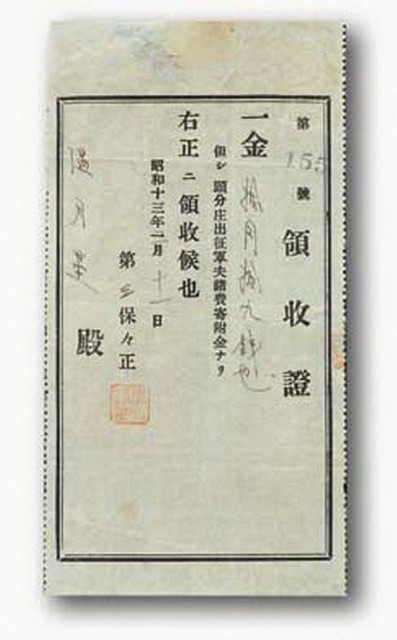 第155號 領收證
一金拾円拾九錢也
但シ 頭分庄出征軍夫諸費寄附金ナリ
右正ニ領收候也
昭和十三年二月十一日
第三保々正
殿